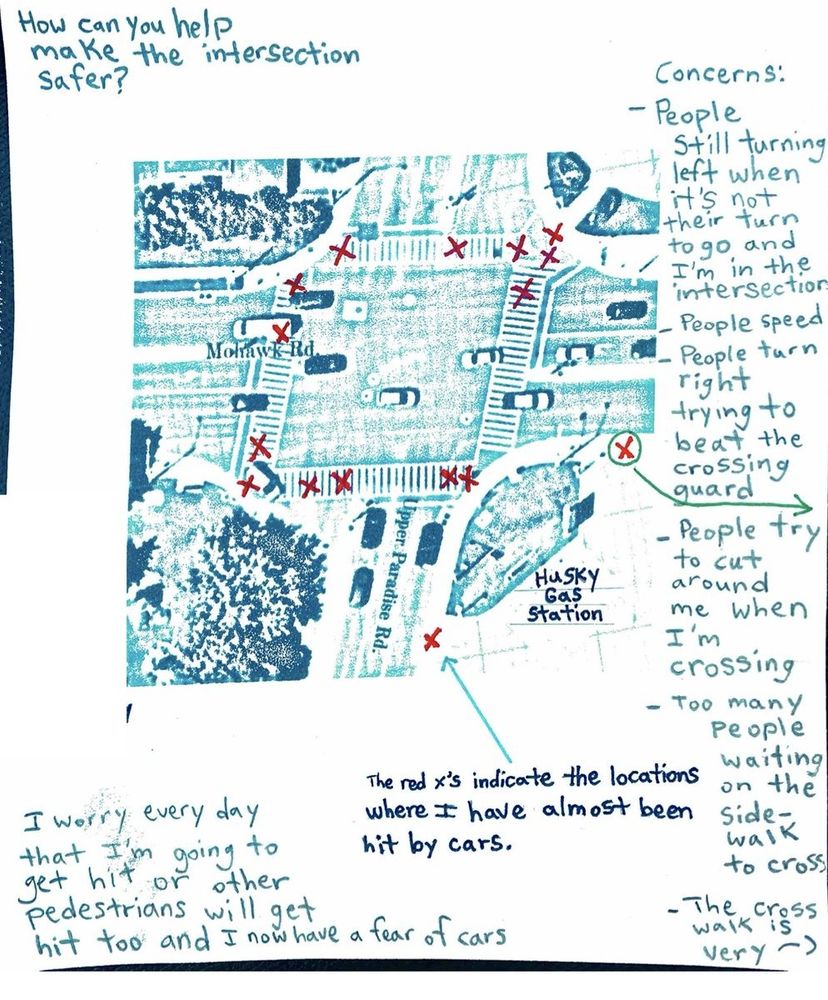 How can you help
make the intersection
safer?
Concerns:
- People
still turning
left when
it's not
their turn
to go and
I'm in the
intersection
- People speed
- People turn
right
trying to
beat the
crossing
guard
- People try
to cut
around
me when
I'm
crossing
- Too many
people
waiting
on the
side-
walk
to cross
- The cross
walk is
very →
Mohawk Rd.
Upper Paradise Rd.
Husky
Gas
Station
The red x's indicate the locations
where I have almost been
hit by cars.
I worry every day
that I'm going to
get hit or other
pedestrians will get
hit too and I now have a fear of cars